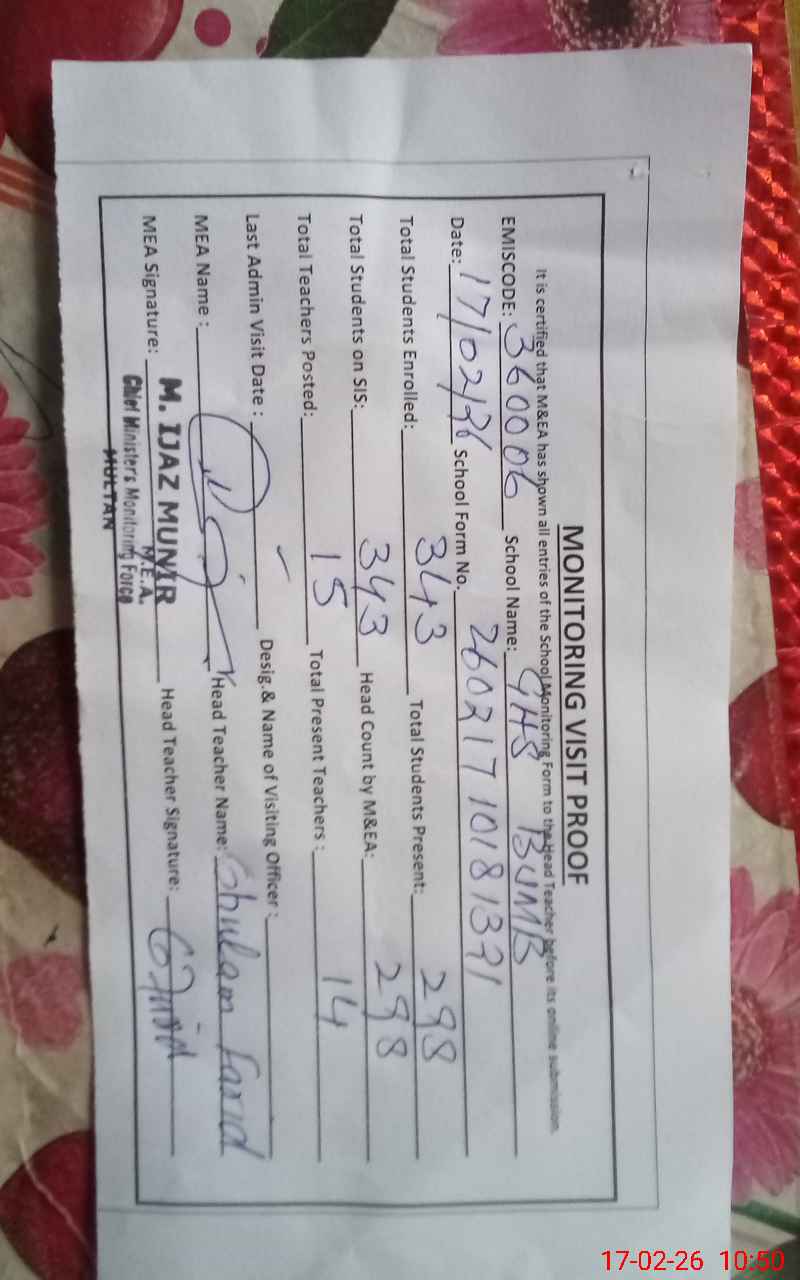 MONITORING VISIT PROOF
It is certified that M&EA has shown all entries of the School Monitoring Form to the Head Teacher before its online submission.
EMISCODE: 360006 School Name: GHS BUMB
Date: 17/02/26 School Form No. 26021710181391
Total Students Enrolled: 343 Total Students Present: 298
Total Students on SIS: 343 Head Count by M&EA: 298
Total Teachers Posted: 15 Total Present Teachers : 14
Last Admin Visit Date : Desig.& Name of Visiting Officer :
MEA Name : Head Teacher Name: Ghulam Farid
MEA Signature: Head Teacher Signature: G Farid
M. IJAZ MUNIR
M.E.A.
Chief Minister's Monitoring Force
MULTAN
17-02-26 10:50